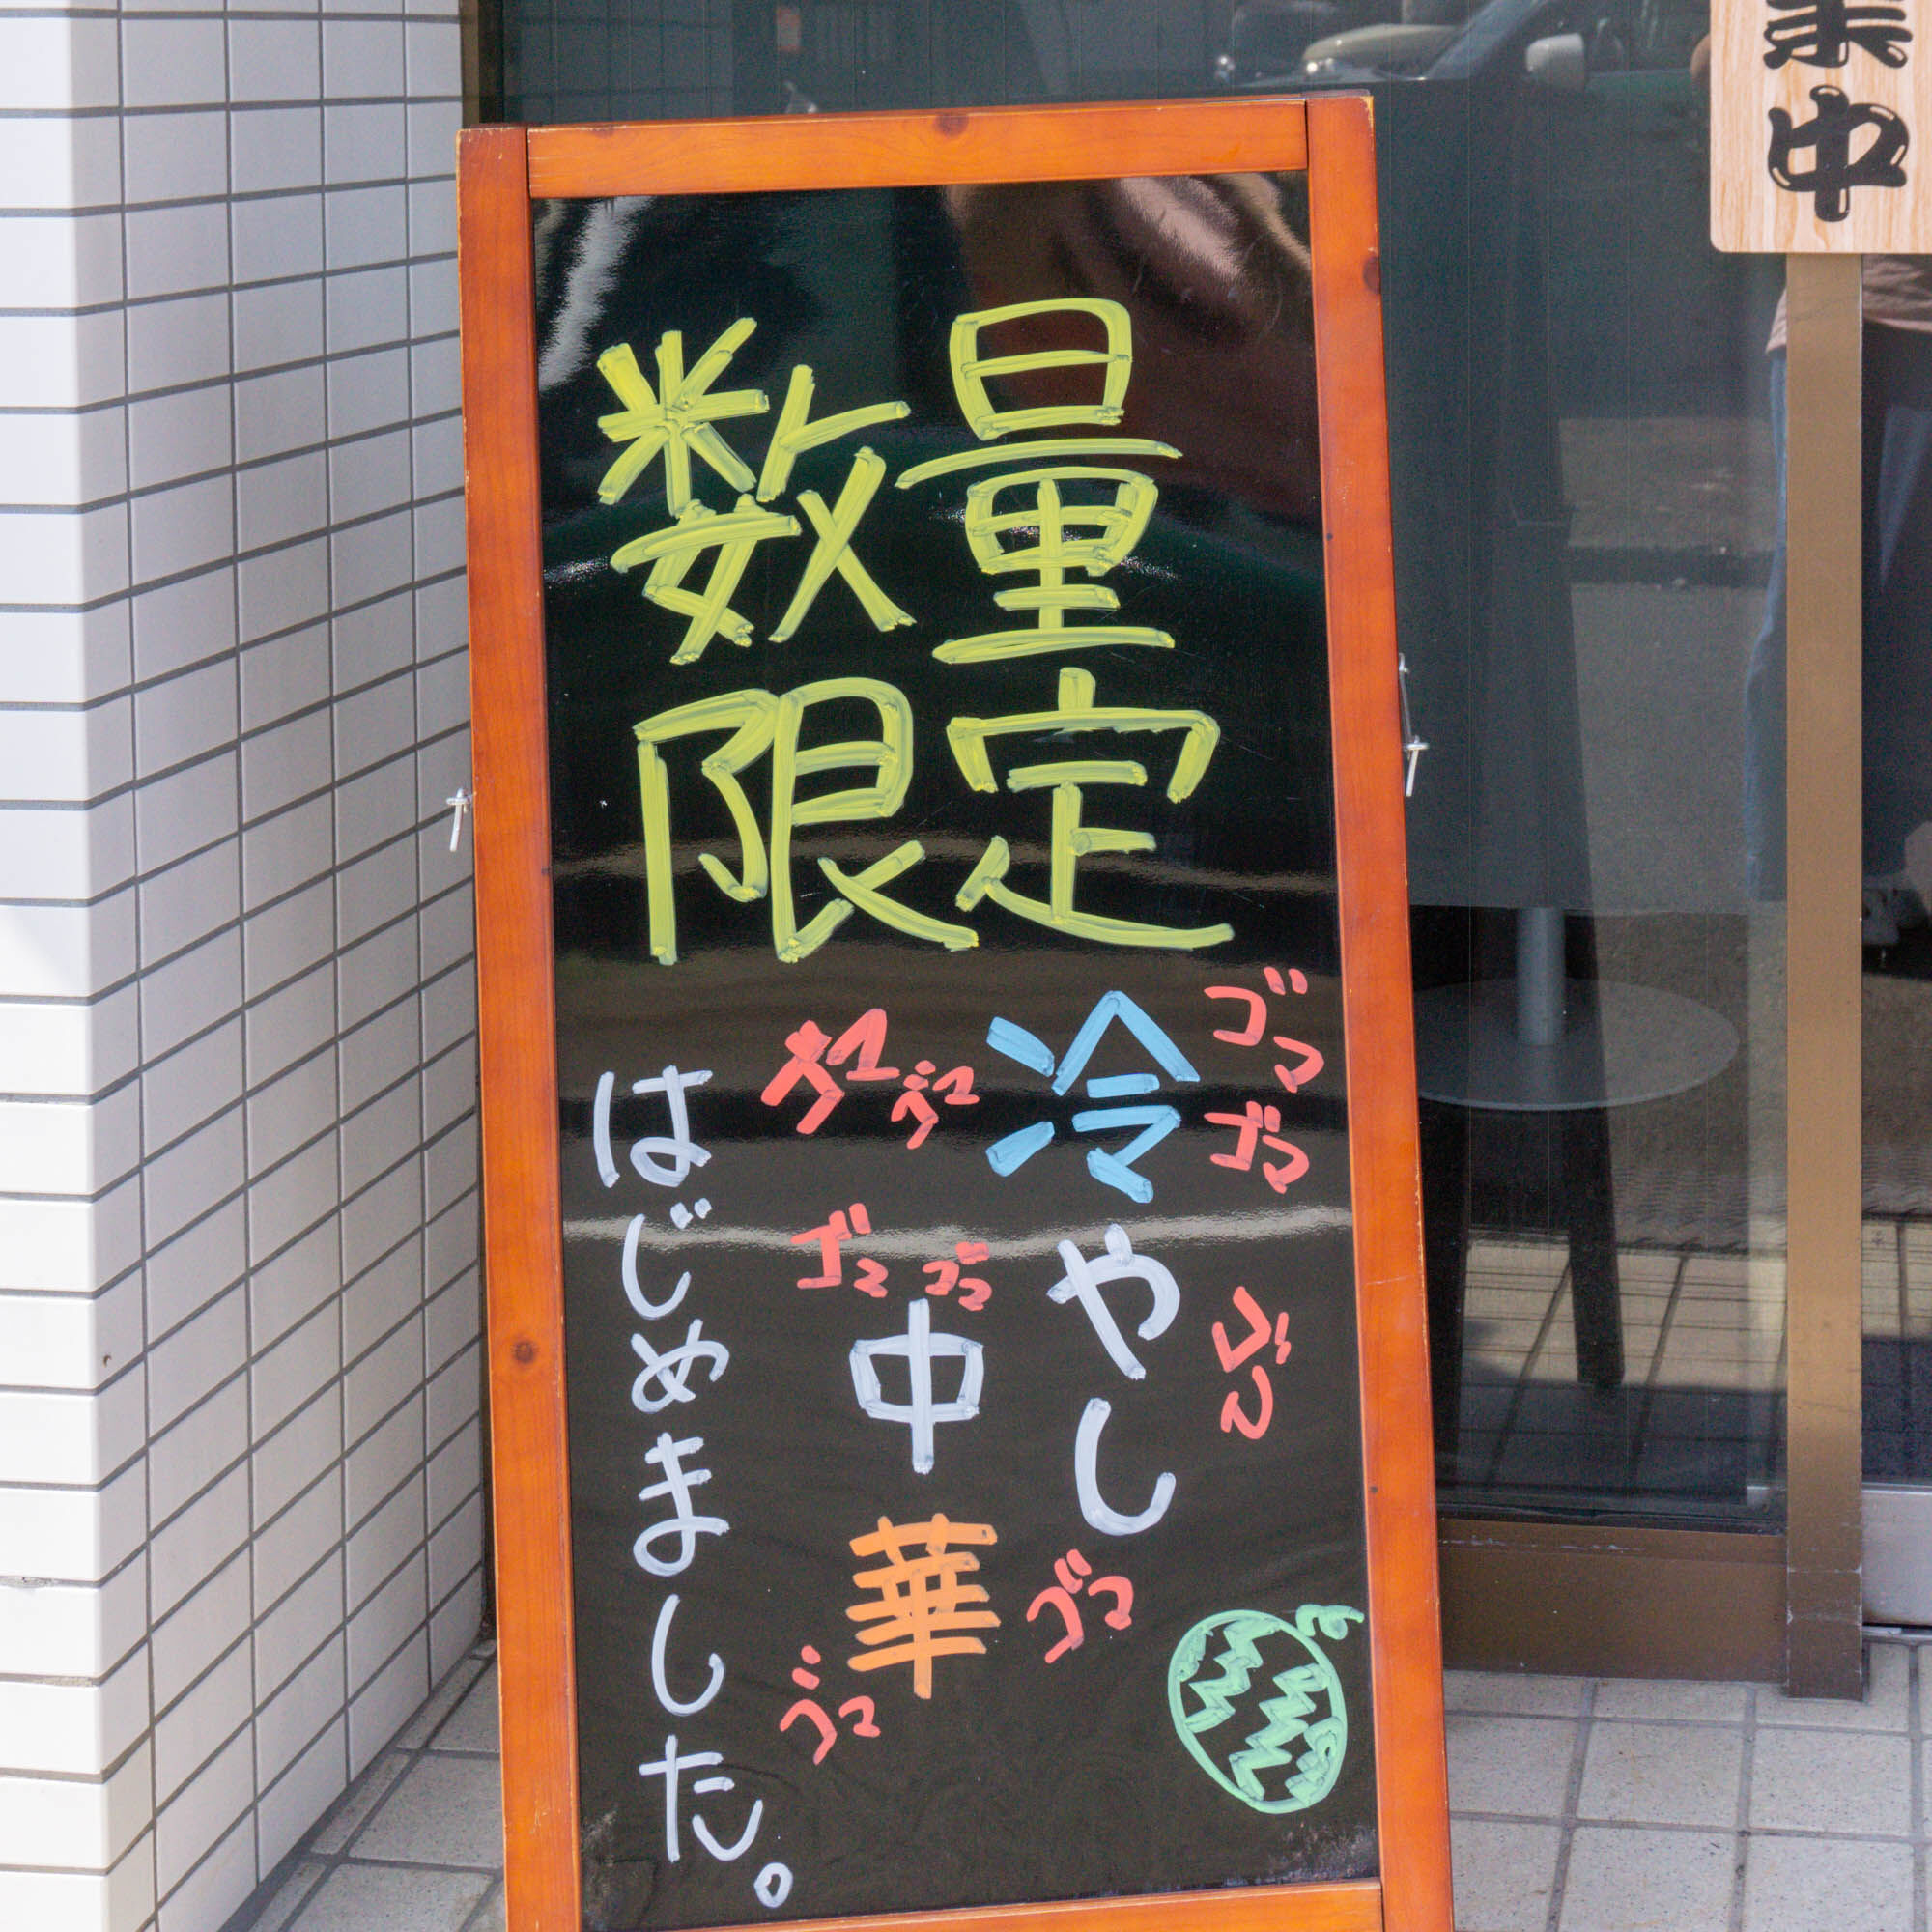 数量
限定
冷やし
中華
はじめました。
ゴマ
ゴマ
ゴマ
ゴマ
ゴマ
ゴマ
ゴマ
ゴマ
ゴマ
業中